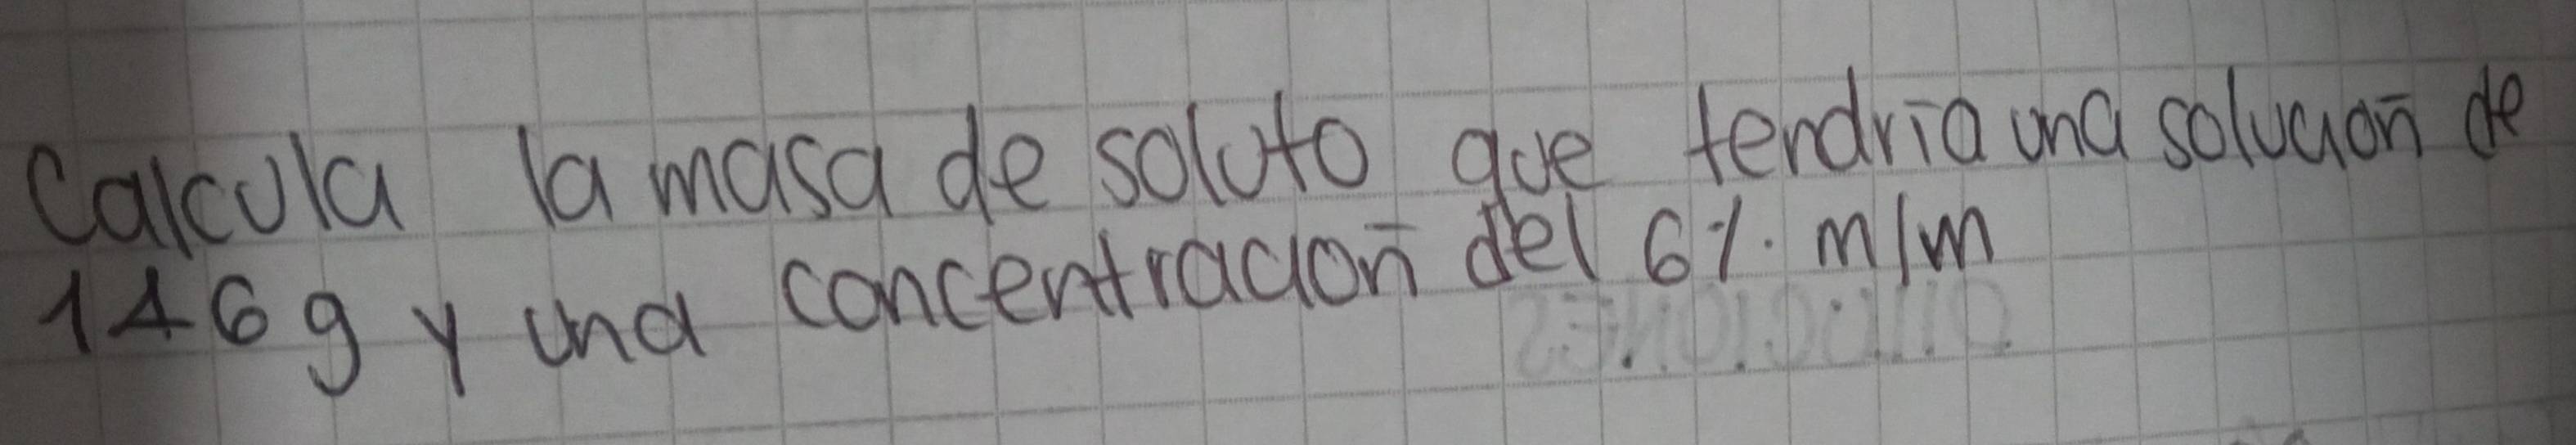 Calcula la masa de soluto que tendría una solución de
146 g y una concentración del 6%. m/m